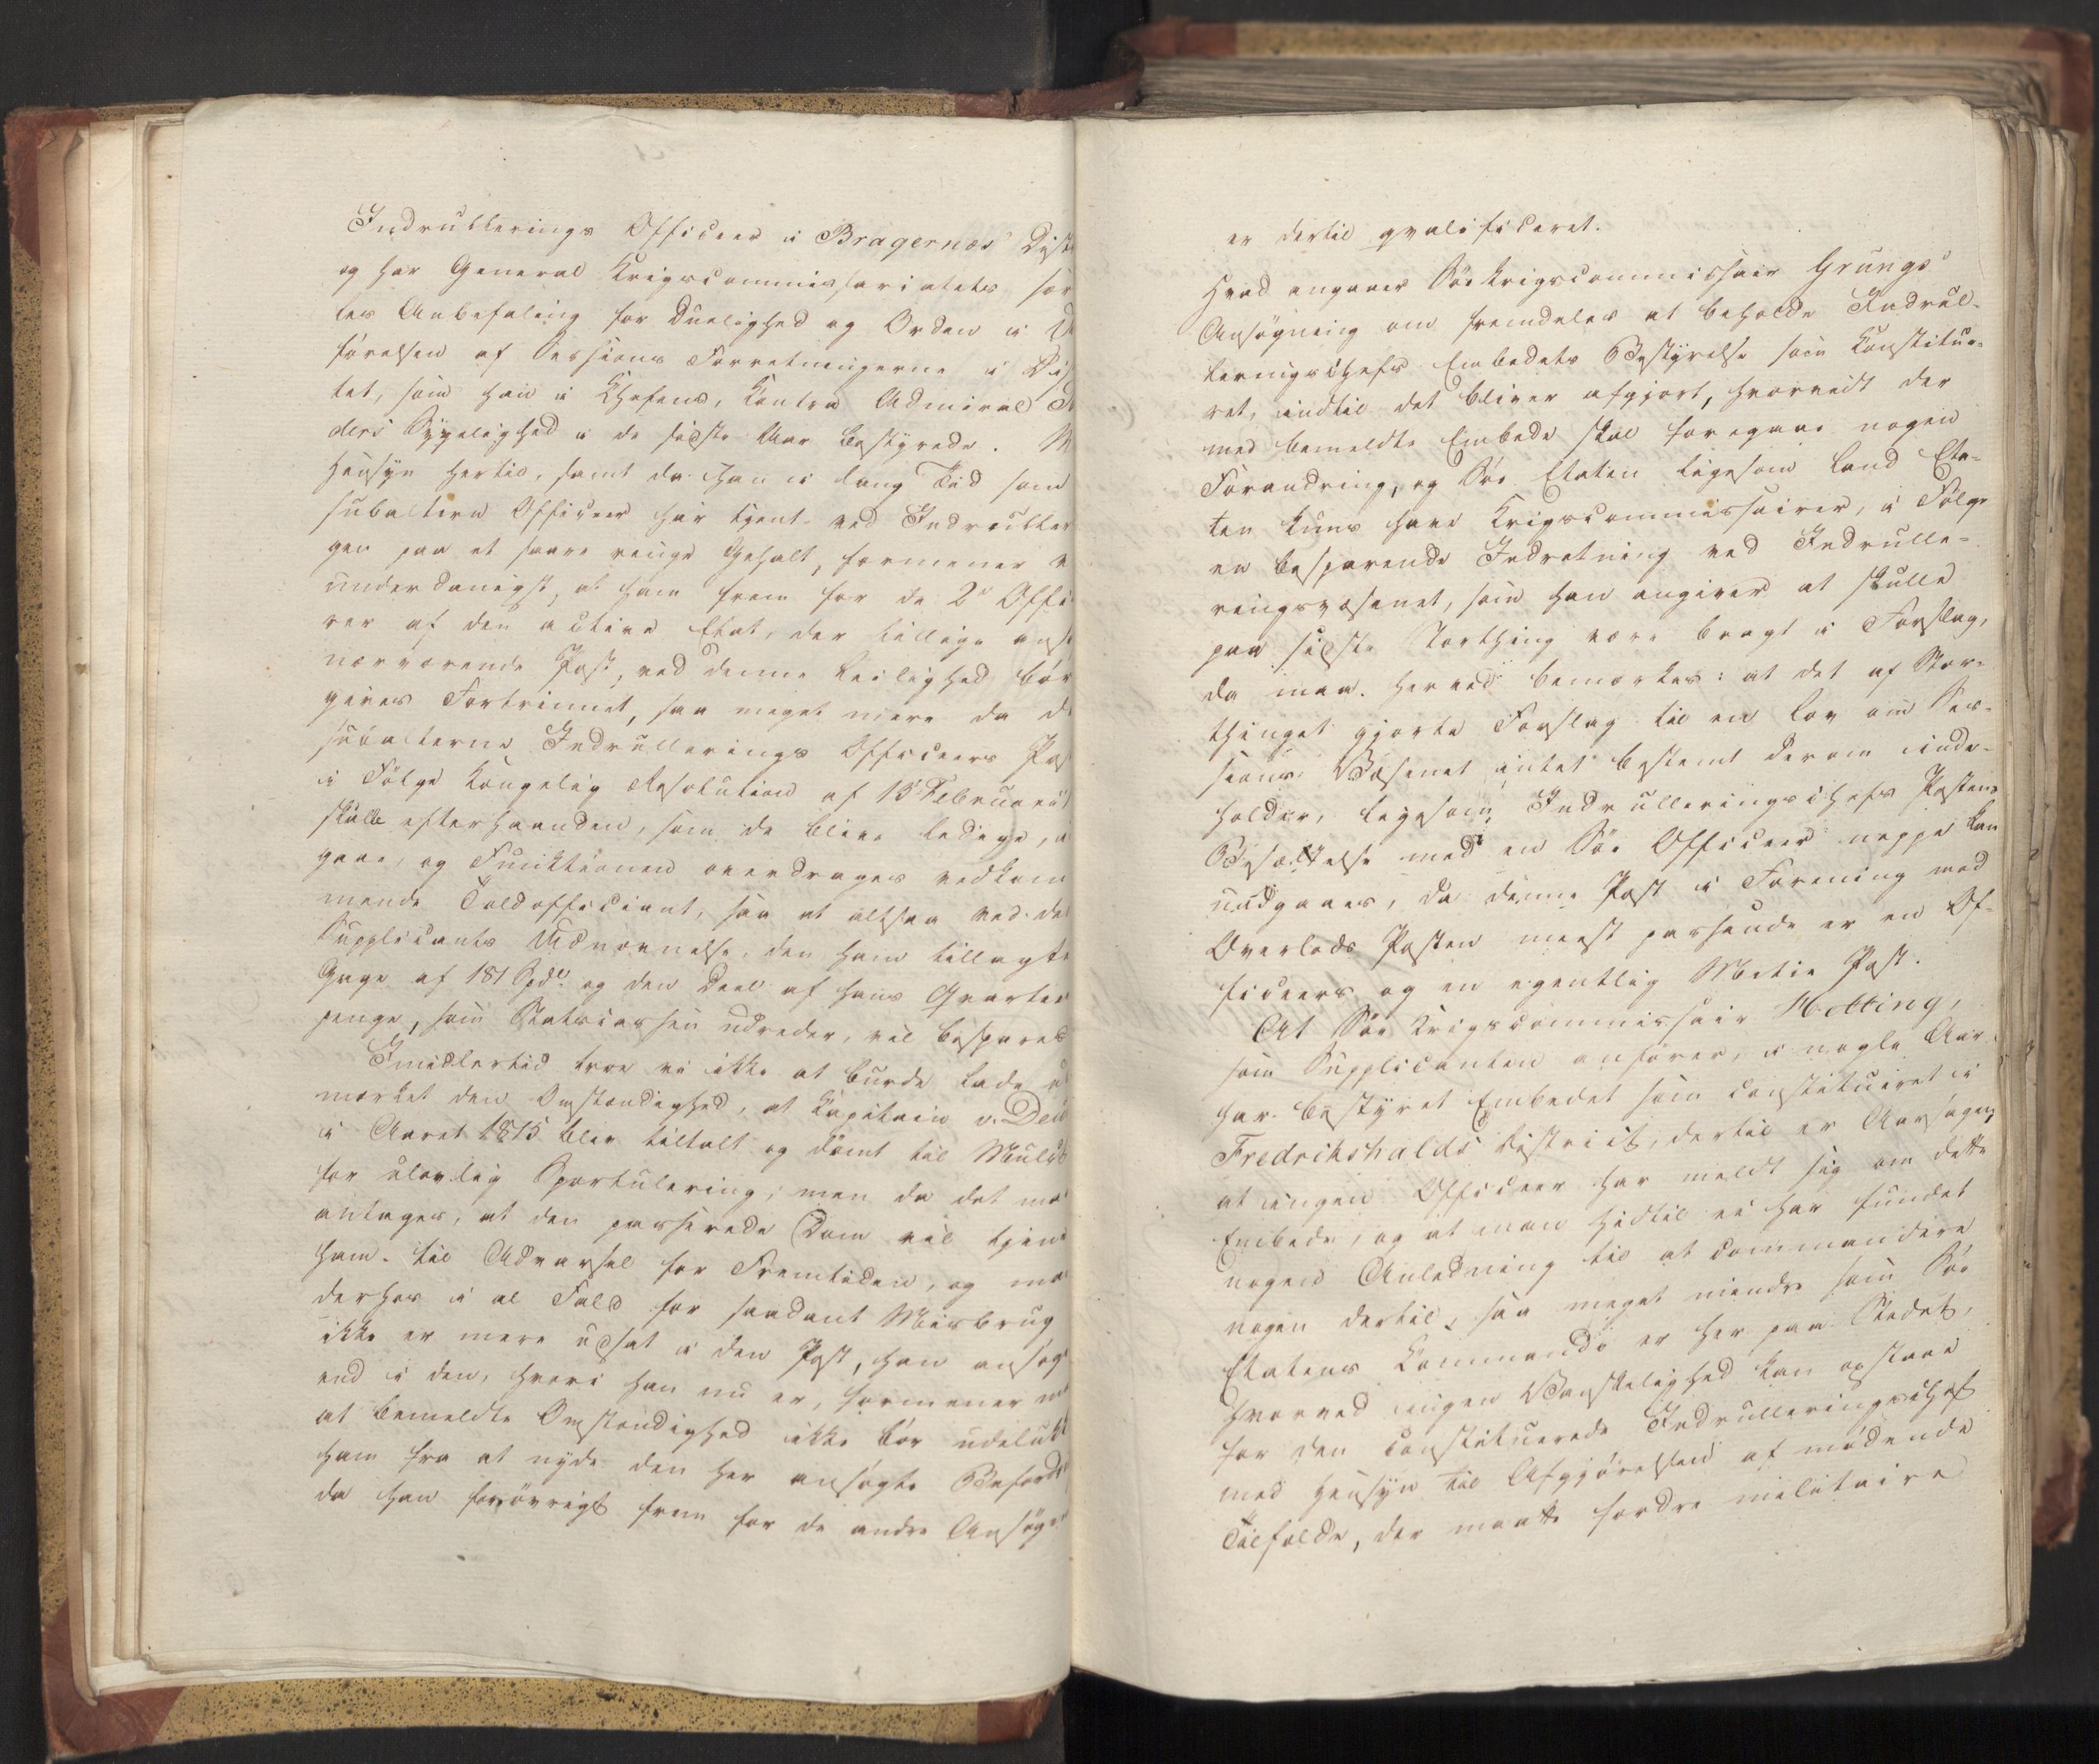 Indrullerings Officeer i Bragernæs Dist
og har General Krigscommissariatets sær
les Anbefaling for Duelighed og Orden i Ud
førelsen af Sessions Forretningerne i Di
tet, som han i Chefens, Contra Admiral
ders Sygelighed i de sidste Aar bestyrede. M
Hensyn hertil, samt da han i lang Tid som
subaltern Officeer har tjent ved Indruller
gen paa et saare ringe Gehalt, formener v
underdanigst, at ham frem for de 2de Offi
rer af den active Etat, der tillige ans
nærværende Post, ved denne Leilighed bör
gives Fortrinnet, saa meget mere da d
subalterne Indrullerings Officeers Pos
i Fölge Kongelig Resolution af 13 Februarii
skulle efterhaanden, som de blive ledige, i
gaae, og Funktionen overdrages vedkom
mende Toldofficiant, saa at altsaa ved de
Supplicants Udnævnelse, den ham tillagte
Gage af 181 Spdl. og den Deel af hans Qvarteer
penge, som Statscassen udreder, vil bespares
Imidlertid troe vi ikke at burde lade u
mærket den Omstændighed, at Kapitain v.
i Aaret 1815 blev tiltalt og dömt til Mulct
for ulovlig Sportulering; men da det ma
antages, at den passerede Dom vil tjene
ham til Advarsel for Fremtiden, og ma
derhos i al Fald for saadant Misbrug
ikke er mere udsat i den Post, han ansög
end i den, hvori han nu er, formener m
at bemeldte Omstændighed ikke bör udeluk
ham fra at nyde den her ansögte Befordr
da han forövrigt frem for de andre Ansöger
er dertil qvalificeret.
Hvad angaaer Söekrigscommissair Grungs
Ansögning om fremdeles at beholde Indrul-
leringschefs Embedets Bestyrelse som Constitue-
ret, indtil det bliver afgjort, hvorvidt der
med bemeldte Embede skal foregaae nogen
Forandring, og Söe Etaten ligesom Land Eta-
ten kuns have Krigscommissairer, i Fölge
en besparende Indretning ved Indrulle-
ringsvæsenet, som han angiver at skulle
paa sidste Storthing være bragt i Forslag,
da maa herved bemærkes: at det af Stor-
thinget gjorte Forslag til en Lov om Ses-
sions Væsenet intet bestemt derom inde-
holder, ligesom Indrulleringschefs Postens
Besættelse med en Söe Officeer neppe kan
undgaaes, da denne Post i Forening med
Overlods Posten meest passende er en Of-
ficeers og en egentlig Metie Post.
At Söe Krigscommissair Hetting,
som Supplicanten anförer, i nogle Aar
har bestyret Embedet som constitueret i
Fredrikshalds District, dertil er Aarsagen,
at ingen Officeer har meldt sig om dette
Embede, og at man hidtil ei har fundet
nogen Anledning til at commandere
nogen dertil, saa meget mindre som Söe
Etatens Commando er her paa Stedet,
hvorved ingen Vanskelighed kan opstaae
for den constituerede Indrulleringschef
med Hensyn til Afgjörelsen af mödende
Tilfælde, der maatte fordre militaire